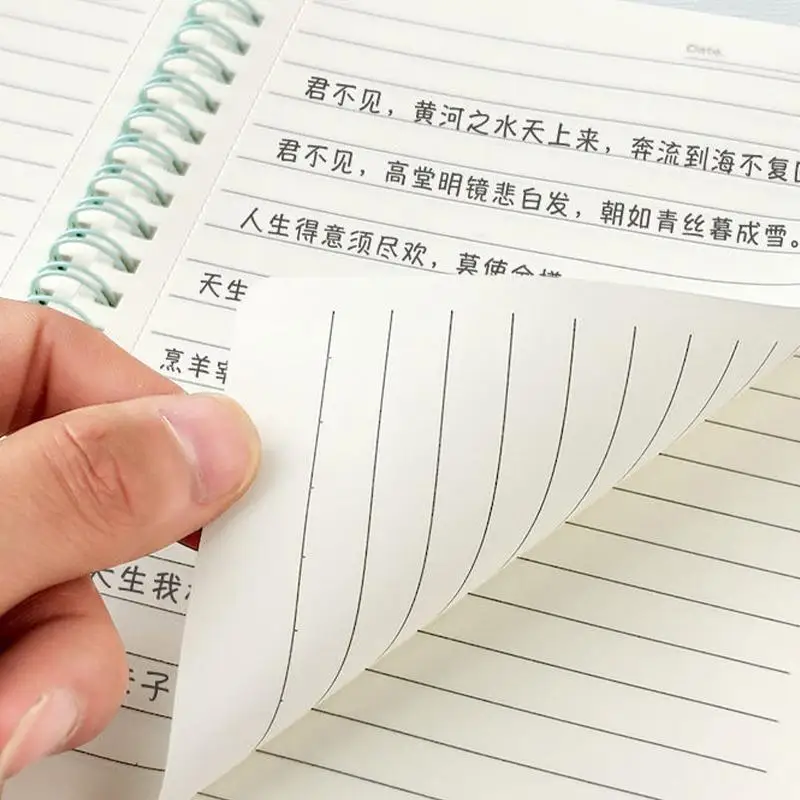 Date.
君不见，黄河之水天上来，奔流到海不复
君不见，高堂明镜悲白发，朝如青丝暮成雪。
人生得意须尽欢，莫使金樽
天生
烹羊宰
天生我
子